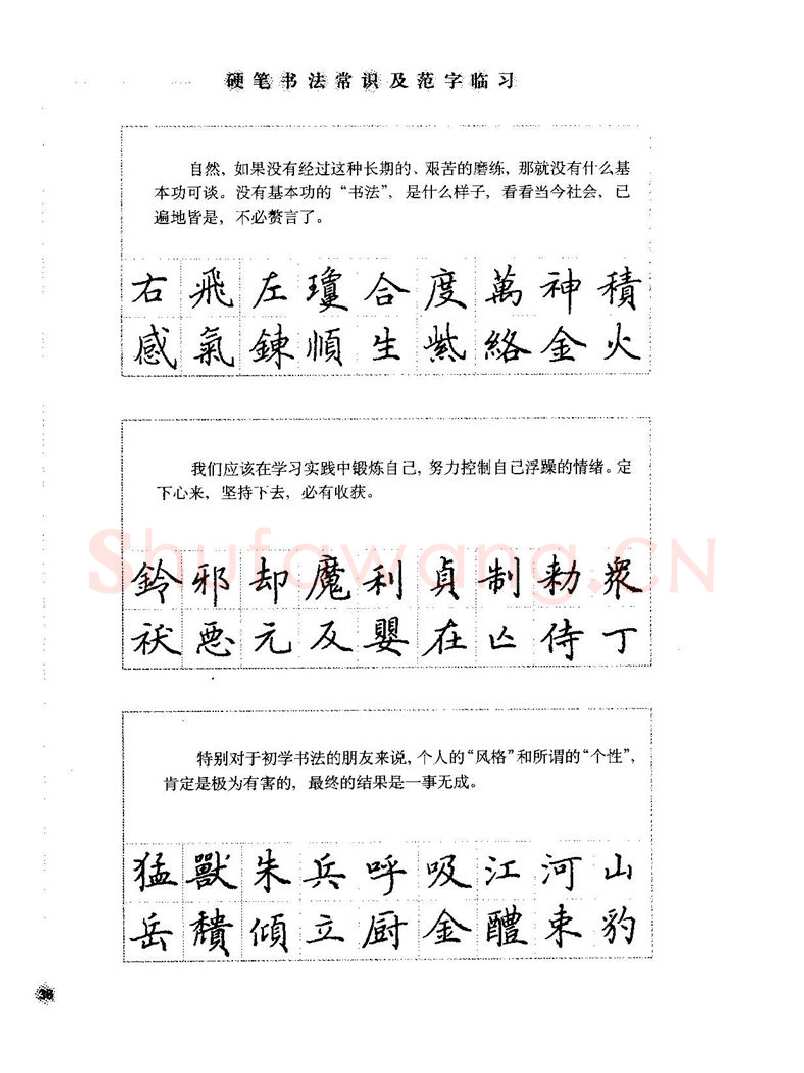 硬笔书法常识及范字临习
自然，如果没有经过这种长期的、艰苦的磨练，那就没有什么基
本功可谈。没有基本功的“书法”，是什么样子，看看当今社会，已
遍地皆是，不必赘言了。
右飛左瓊合度萬神積
感氣鍊順生紫絡金火
我们应该在学习实践中锻炼自己，努力控制自己浮躁的情绪。定
下心来，坚持下去，必有收获。
Shufawang.CN
鈴邪却魔利貞制勑衆
袄惡元反嬰在亡侍丁
特别对于初学书法的朋友来说，个人的“风格”和所谓的“个性”，
肯定是极为有害的，最终的结果是一事无成。
猛獸朱兵呼吸江河山
岳穨傾立厨金醴東豹
36